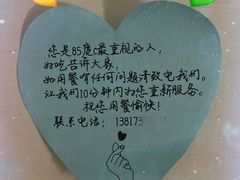 您是85度C最重视的人,
好吃告诉大家,
如用餐有任何问题请致电我们。
让我们10分钟内为您重新服务。
祝您用餐愉快!
联系电话: 13817